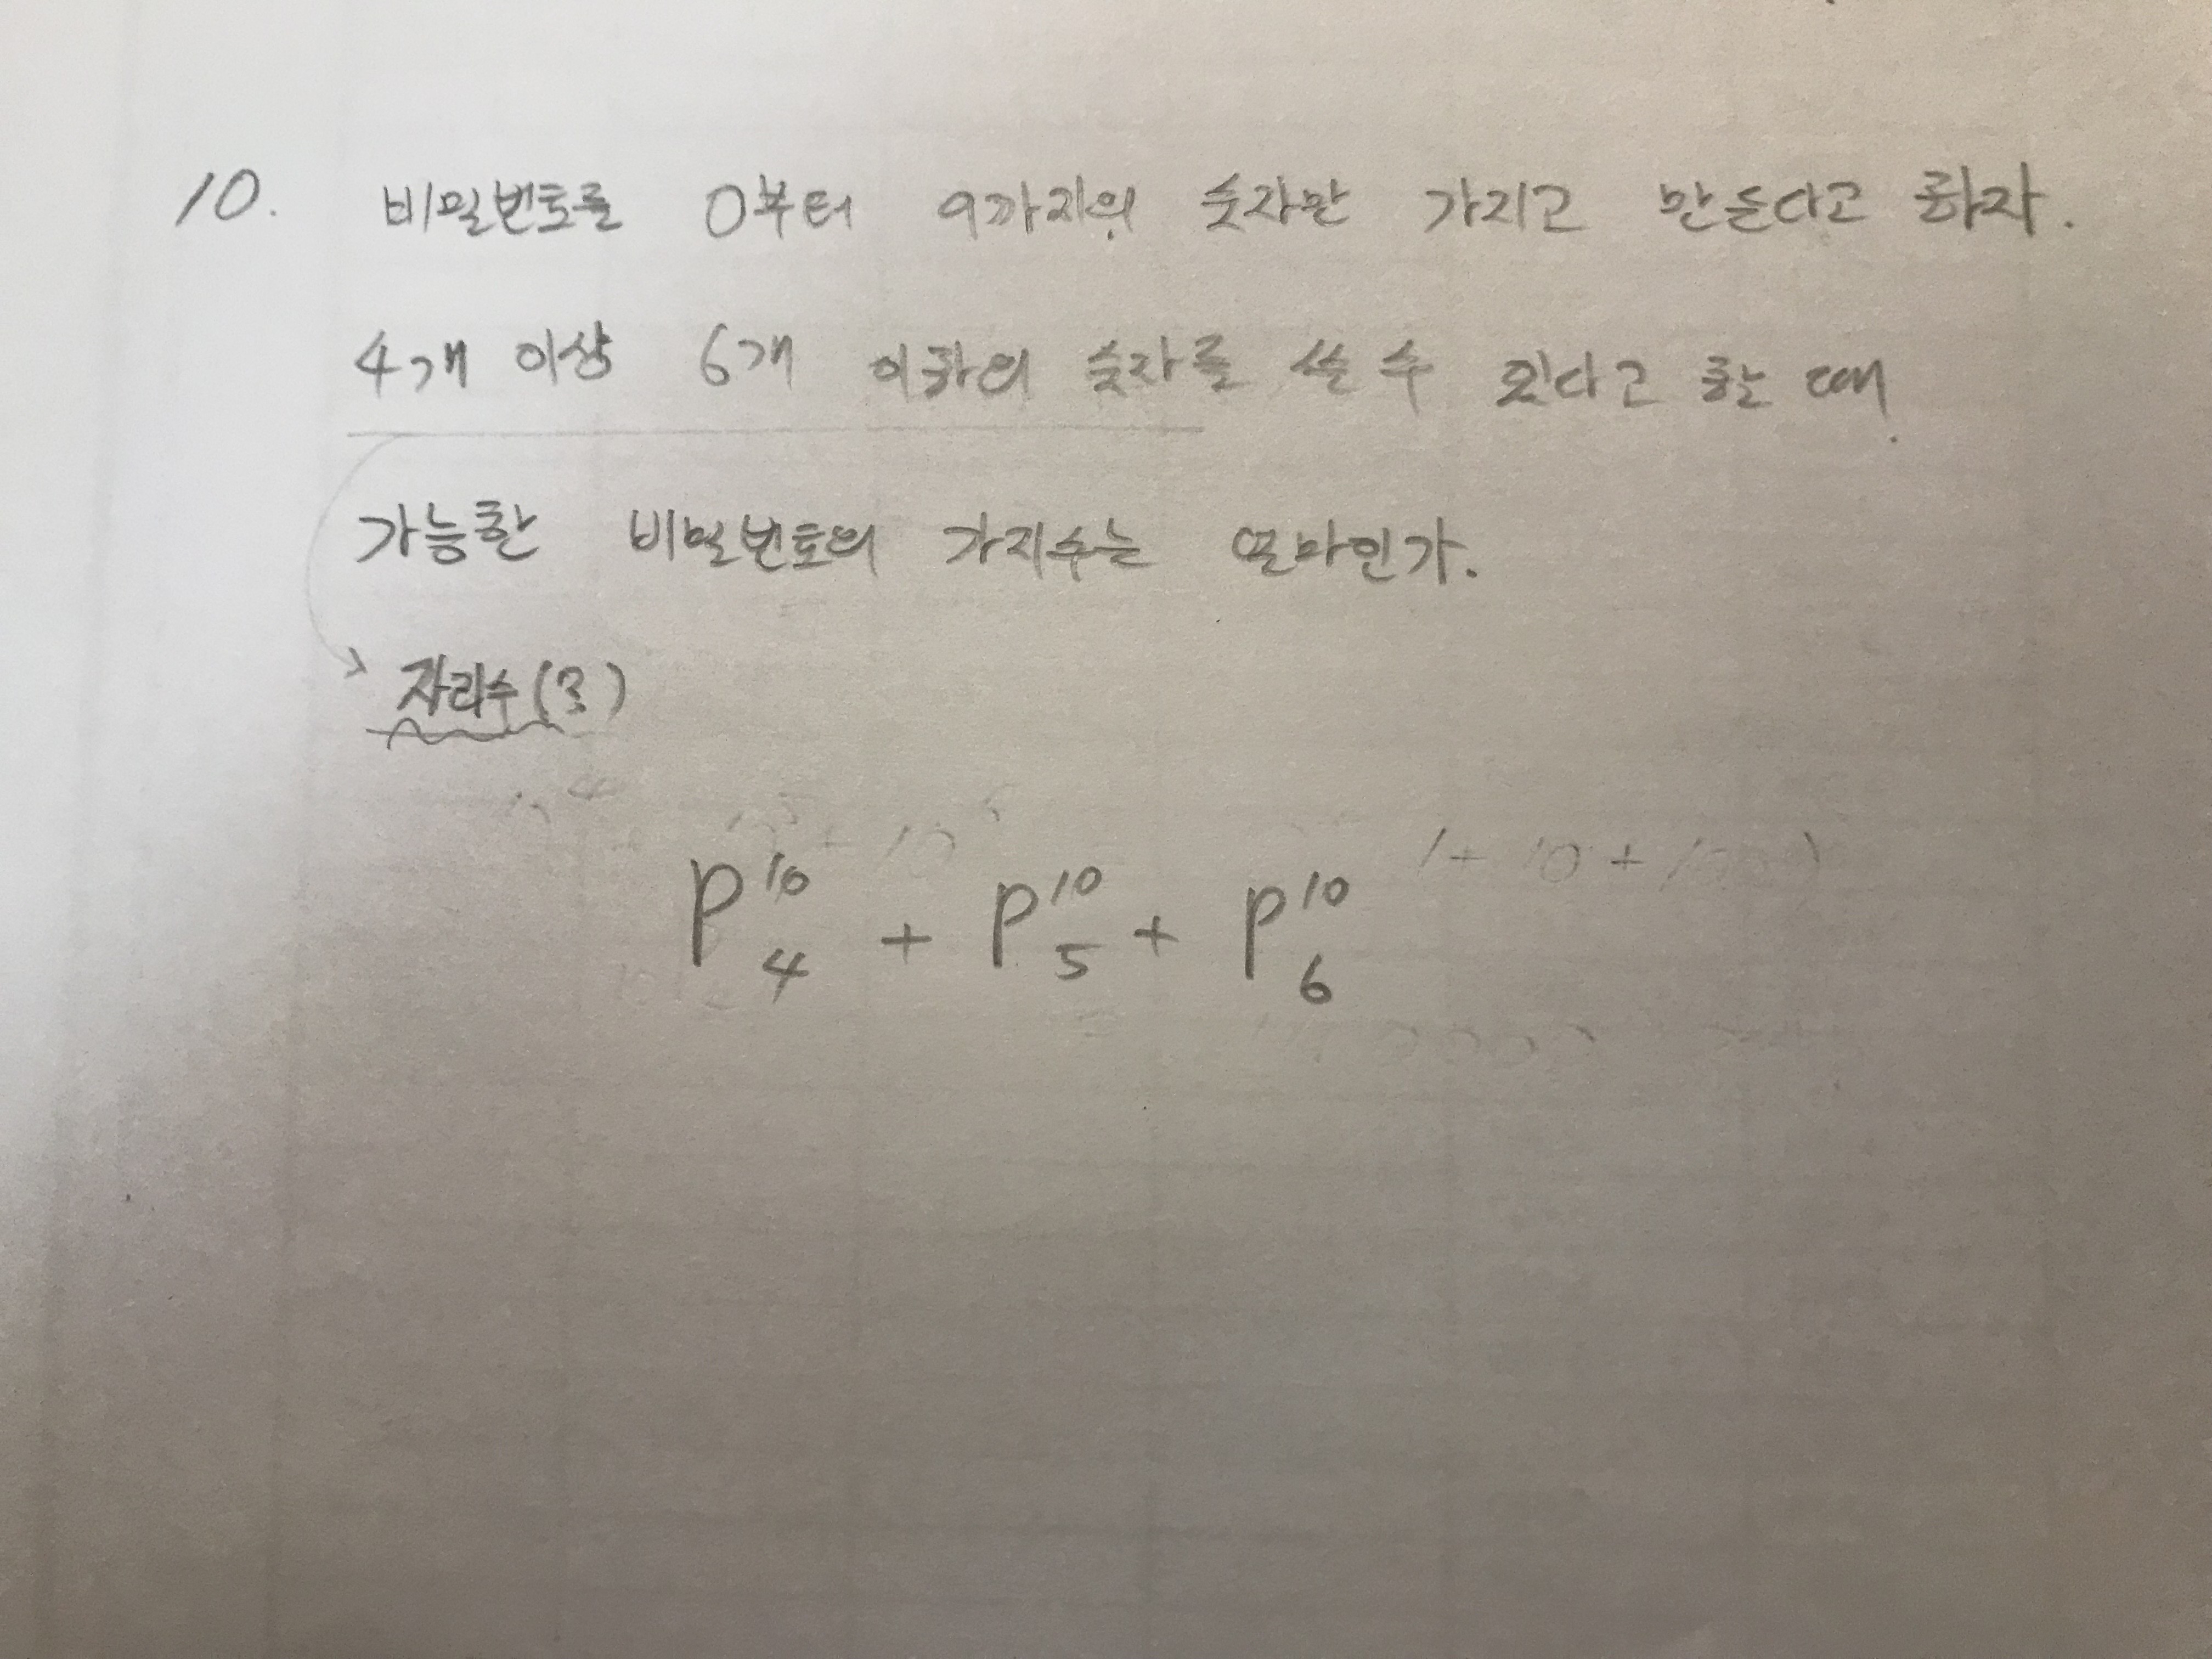 10. 비밀번호를 0부터 9까지의 숫자만 가지고 만든다고 하자.
4개 이상 6개 이하의 숫자를 쓸 수 있다고 할 때,
가능한 비밀번호의 가지수는 얼마인가.
자리수(?)
P¹⁰₄ + P¹⁰₅ + P¹⁰₆